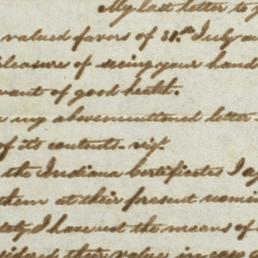 My last letter to y
valued favors of 31st July a
pleasure of seeing your hand
want of good health.
my abovementioned letter
of its contents. vizt.
the Indiana Certificates I a
them at their present nomin
I have not the means of
their value in case